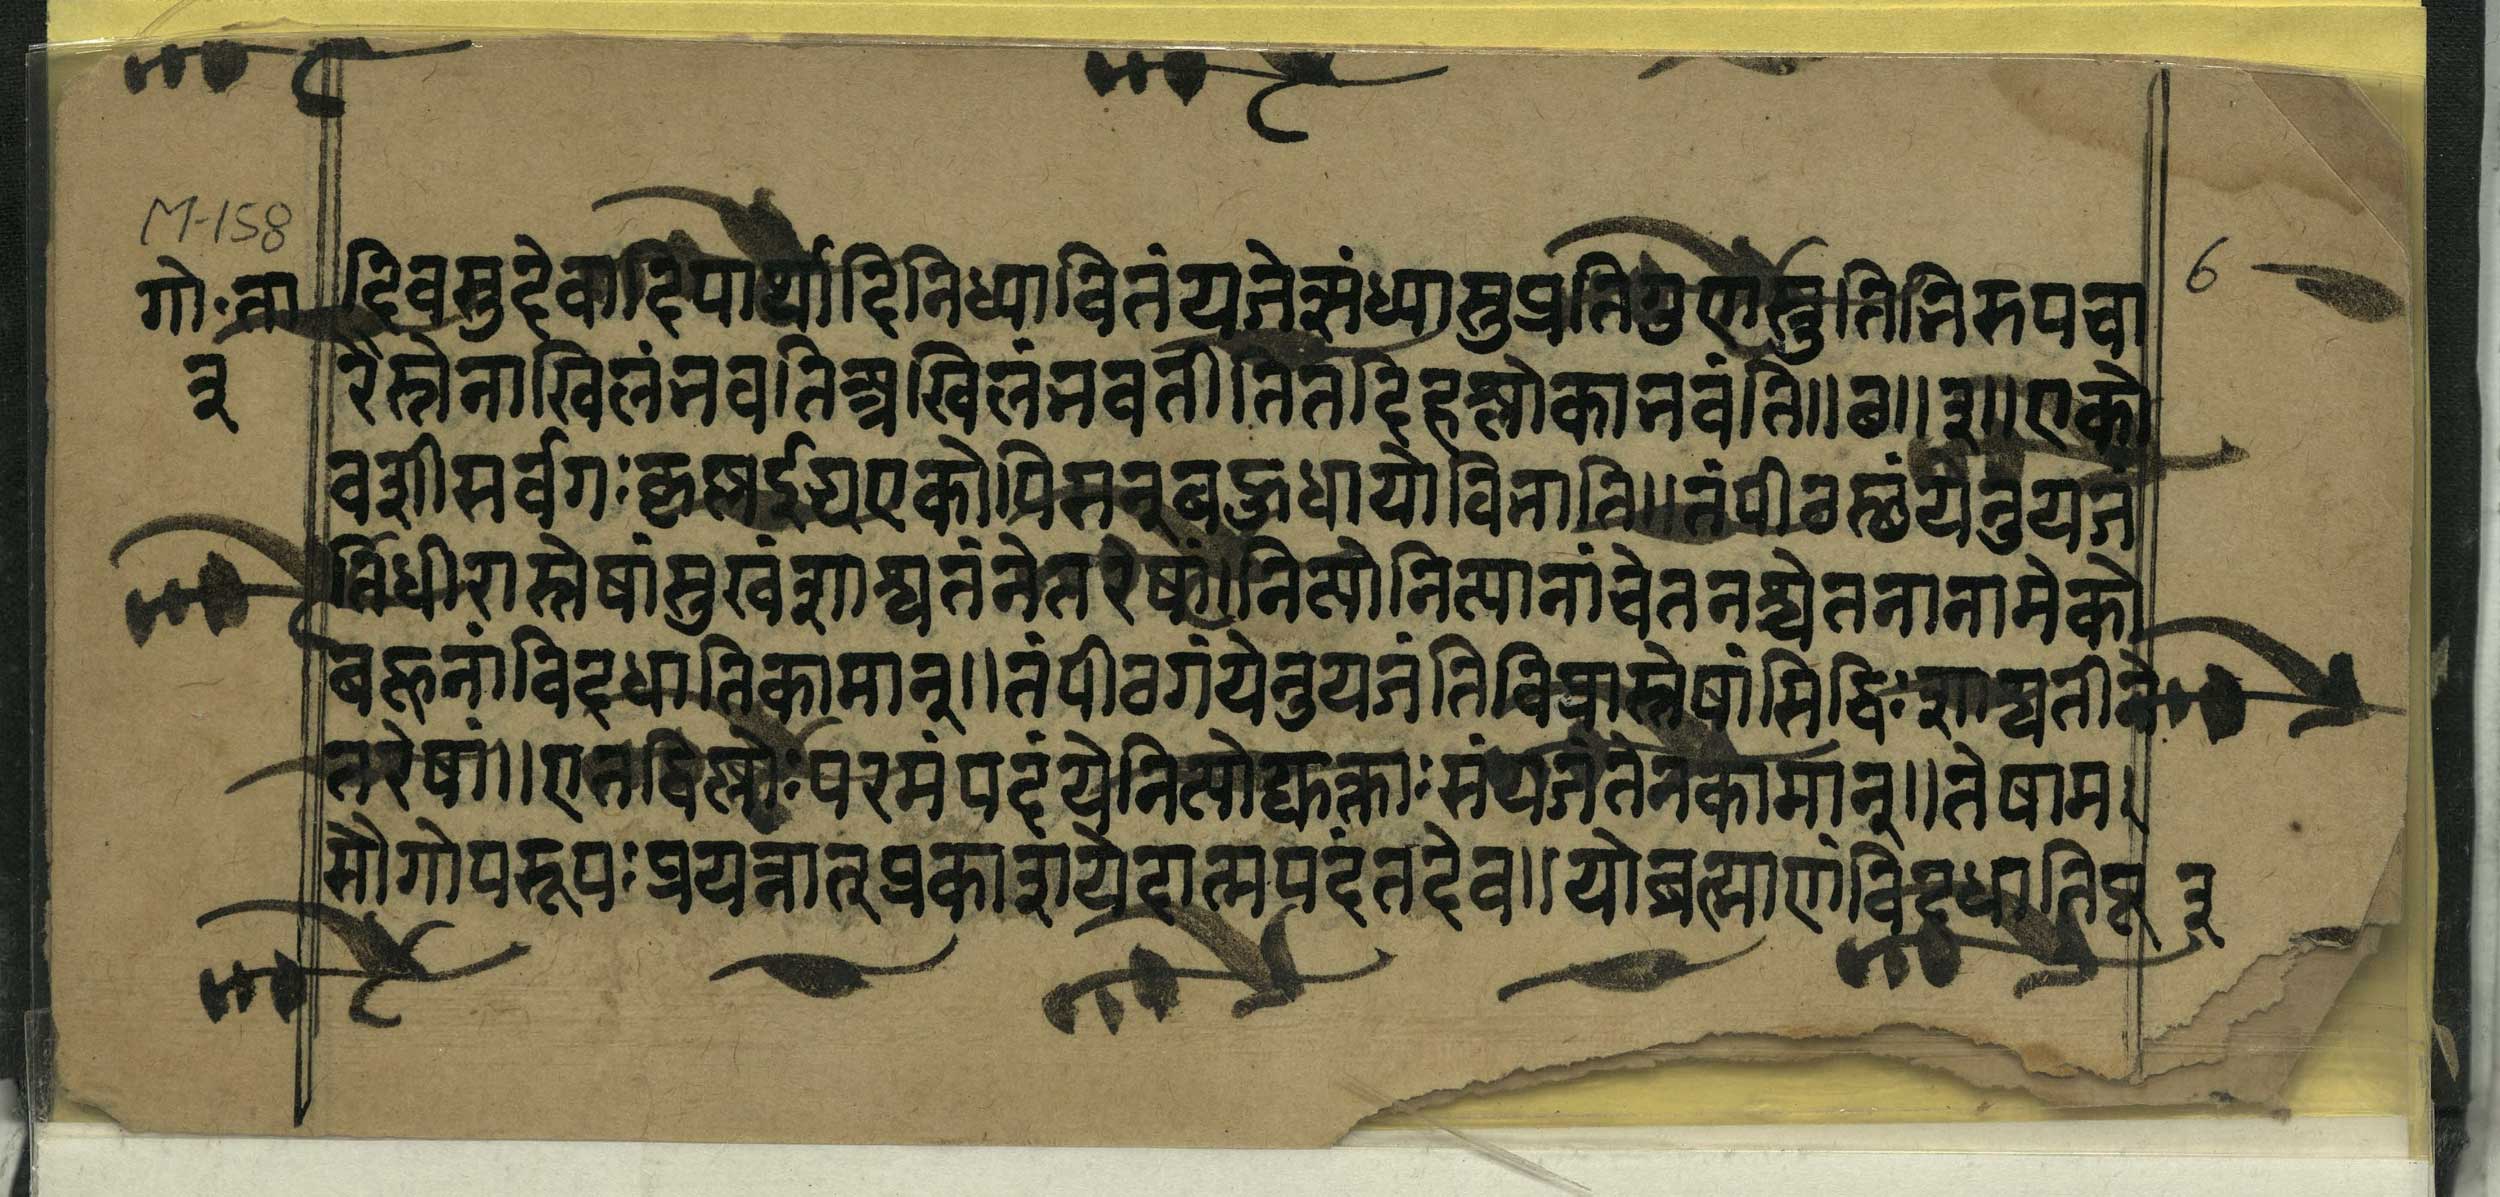 M-158
गो॰ता
३
६
दिवसुदेवादिपार्थादिनिध्यावितंयजेत्संध्यासुप्रतिगुणस्तुतिनिरुपचा
रैस्तेनाखिलंभवतिअखिलंभवतीतितदिहश्लोकाभवंति॥छ॥३॥एको
वशीसर्वगःकृष्णईड्यएकोपिसन्बहुधायोविभाति॥तंपीठस्थंयेनुयजं
तिधीरास्तेषांसुखंशाश्वतंनेतरेषां।नित्योनित्यानांचेतनश्चेतनानामेको
बहूनांविदधातिकामान्॥तंपीठगंयेनुयजंतिविप्रास्तेषांसिद्धिःशाश्वतीने
तरेषां॥एतद्विष्णोःपरमंपदंयेनित्योद्युक्ताःसंयजंतेनकामान्॥तेषाम
सौगोपरूपःप्रयत्नात्प्रकाशयेदात्मपदंतदेव॥योब्रह्माणंविदधातिपू
३